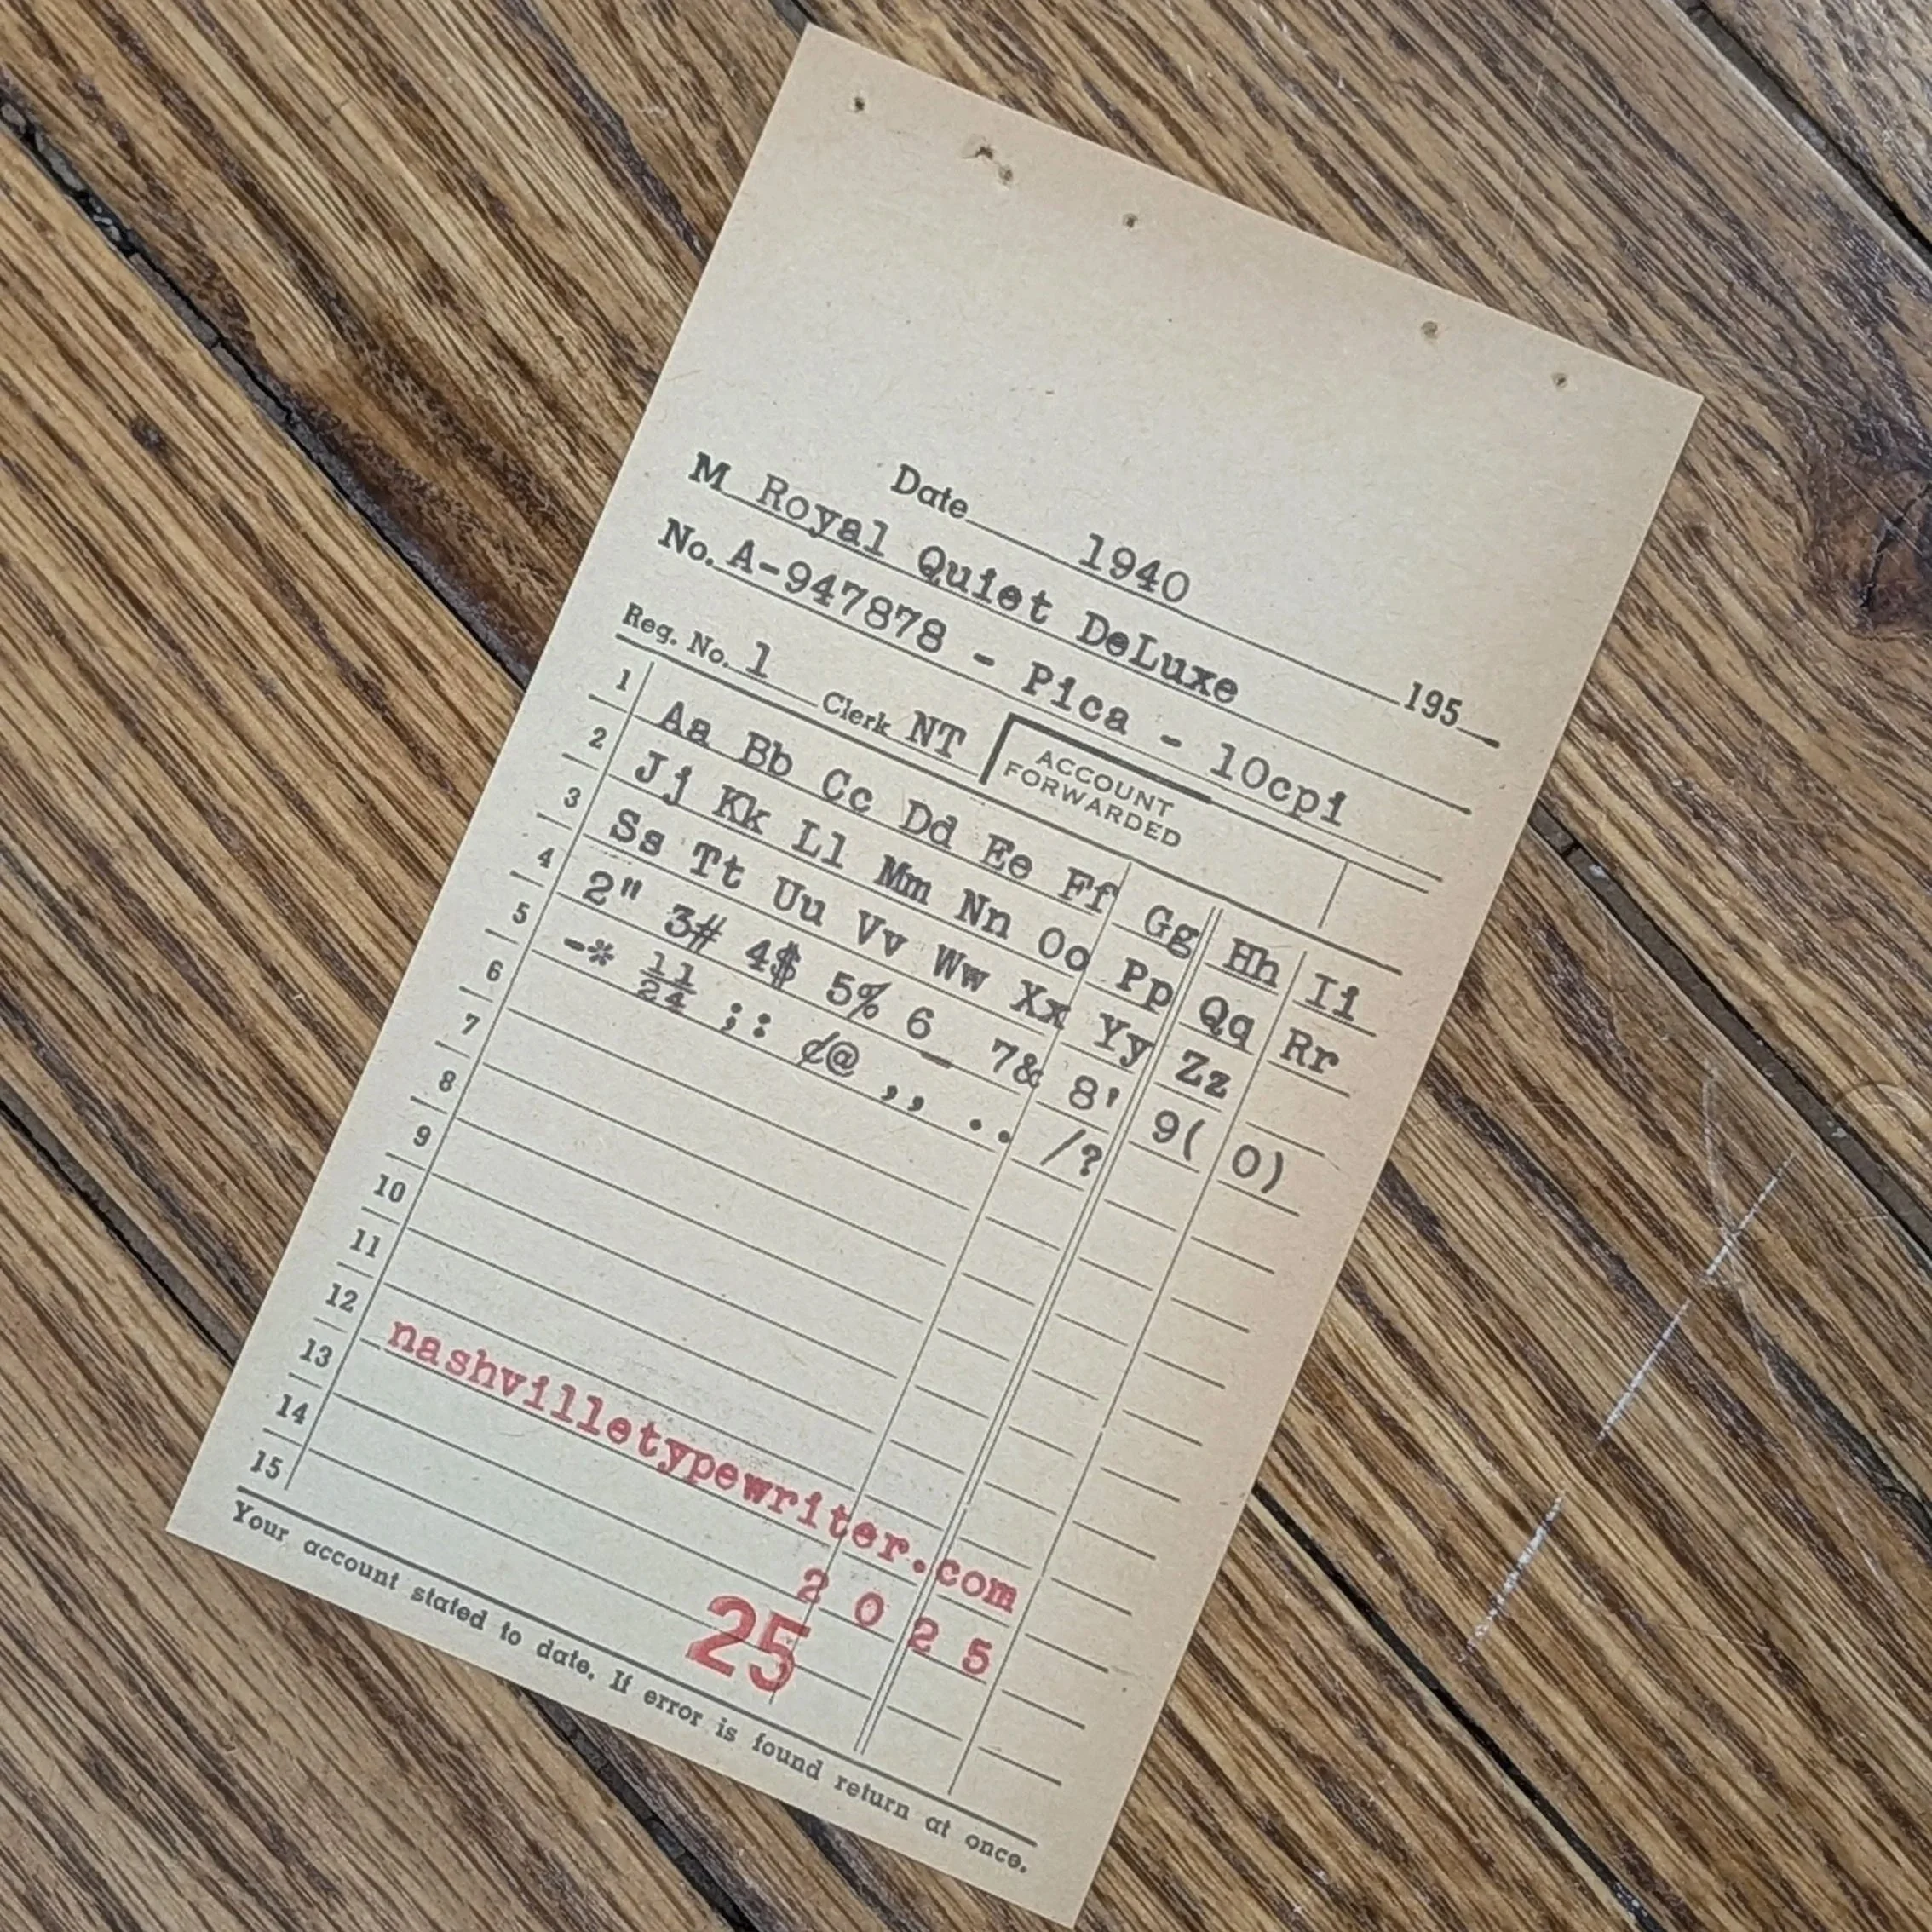 Date 1940 195
M Royal Quiet DeLuxe
No. A-947878 - Pica - 10cpi
Reg. No. 1 Clerk NT ACCOUNT FORWARDED
1 Aa Bb Cc Dd Ee Ff Gg Hh Ii
2 Jj Kk Ll Mm Nn Oo Pp Qq Rr
3 Ss Tt Uu Vv Ww Xx Yy Zz
4 2" 3# 4$ 5% 6_ 7& 8' 9( 0)
5 -* ½¼ ;: ¢@ ,, .. /?
6
7
8
9
10
11
12 nashvilletypewriter.com
13 2 0 2 5
14 25
15
Your account stated to date. If error is found return at once.